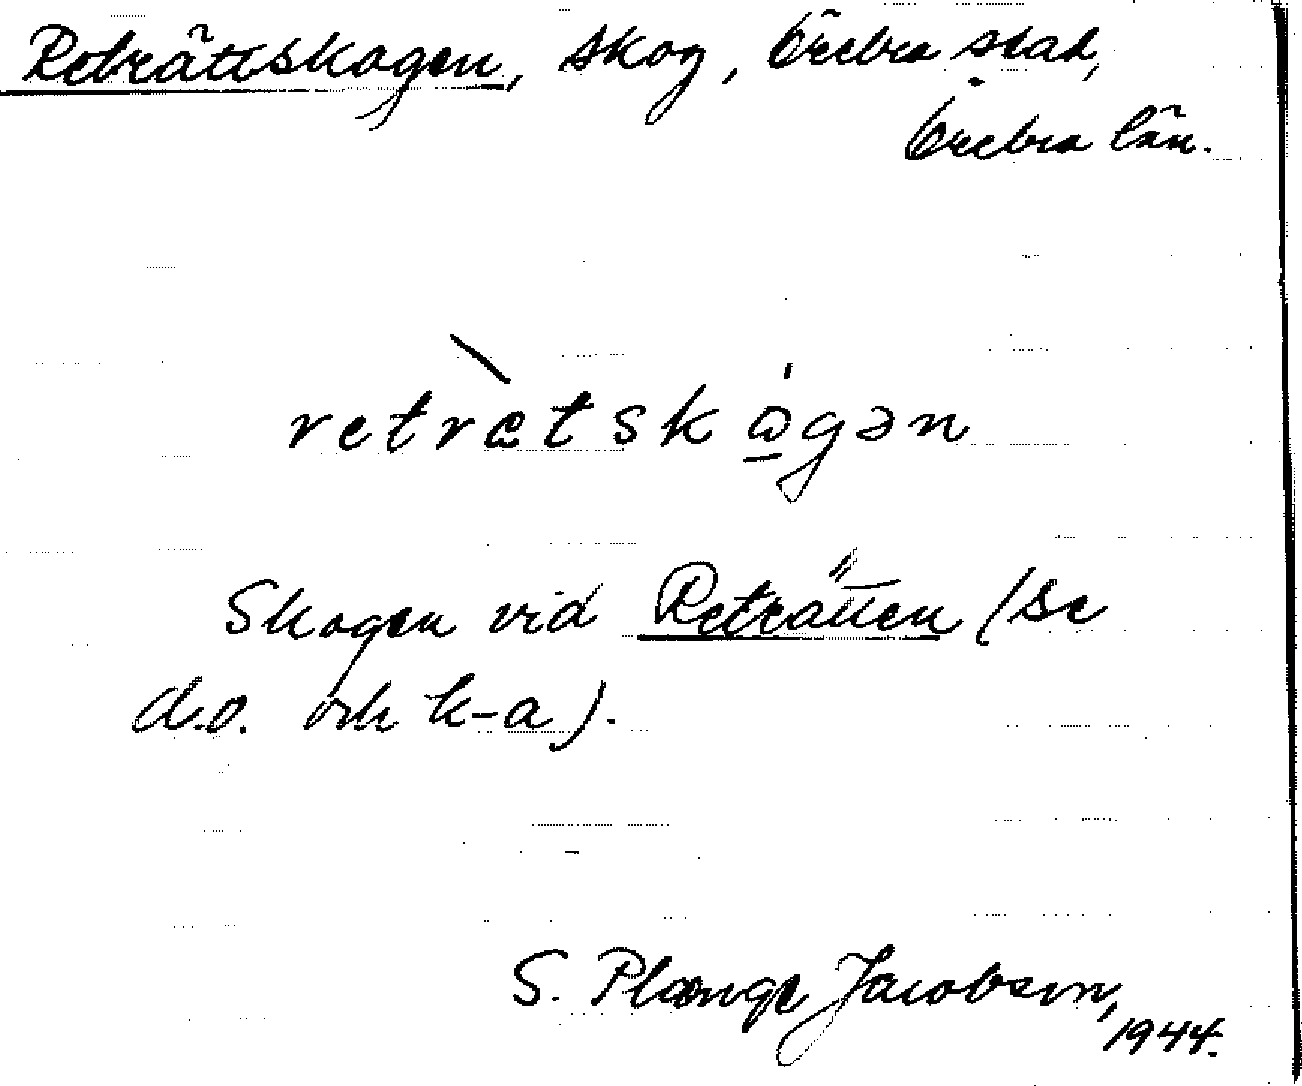 Reträttskogen, skog, Örebro stad,
Örebro län.
retrætskògən
Skogen vid Reträtten (se
d.o. och k-a).
S. Plænge Jacobson,
1944.